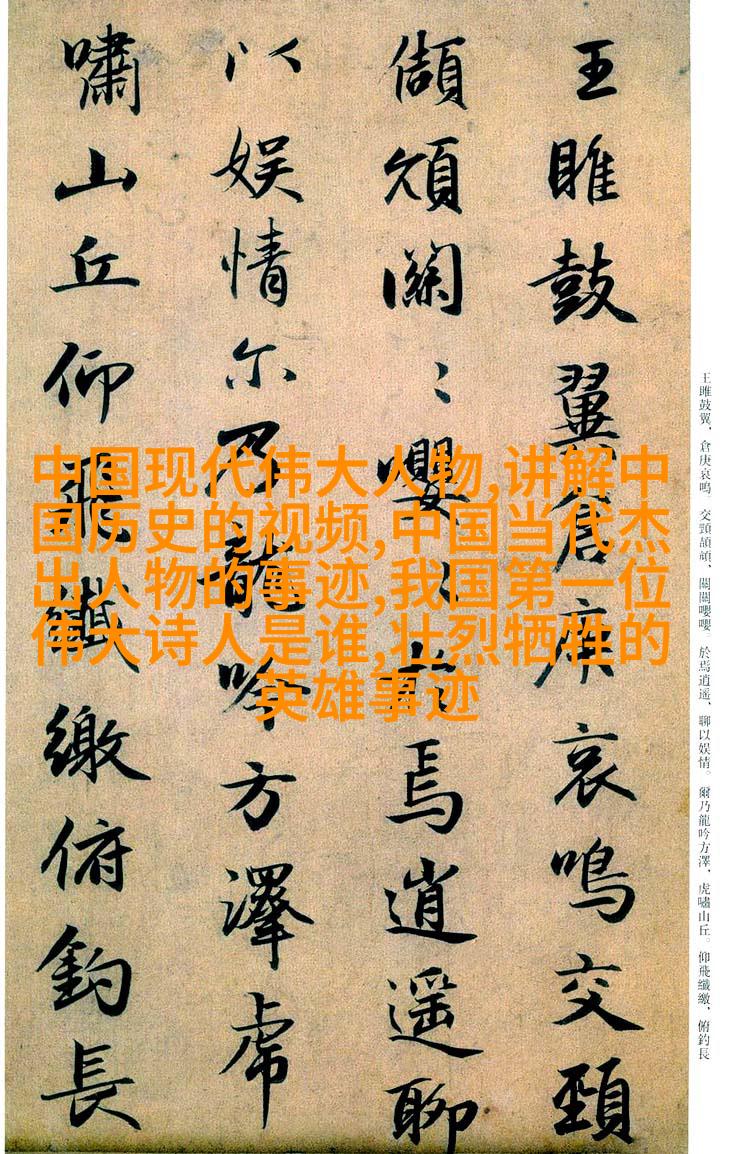 王雎鼓翼倉庚哀鳴交頸
頡頏關〻嚶〻於焉逍遥聊
以娱情尔乃龍吟方澤虎
嘯山丘仰飛纖繳俯釣長
王雎鼓翼、倉庚哀鳴。交頸頡頏、關關嚶嚶。於焉逍遥、聊以娱情。爾乃龍吟方澤、虎嘯山丘。仰飛纖繳、俯釣長
中国现代伟大人物,讲解中
国历史的视频,中国当代杰
出人物的事迹,我国第一位
伟大诗人是谁,壮烈牺牲的
英雄事迹